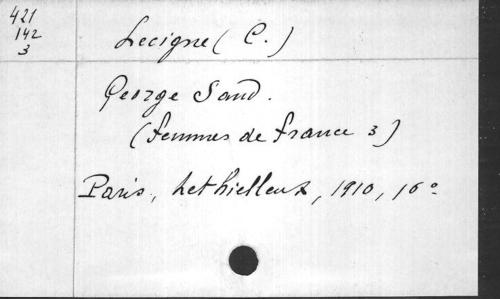 421
142
3
Lecigne (C.)
George Sand.
(femmes de France 3)
Paris, Lethielleux, 1910, 16°